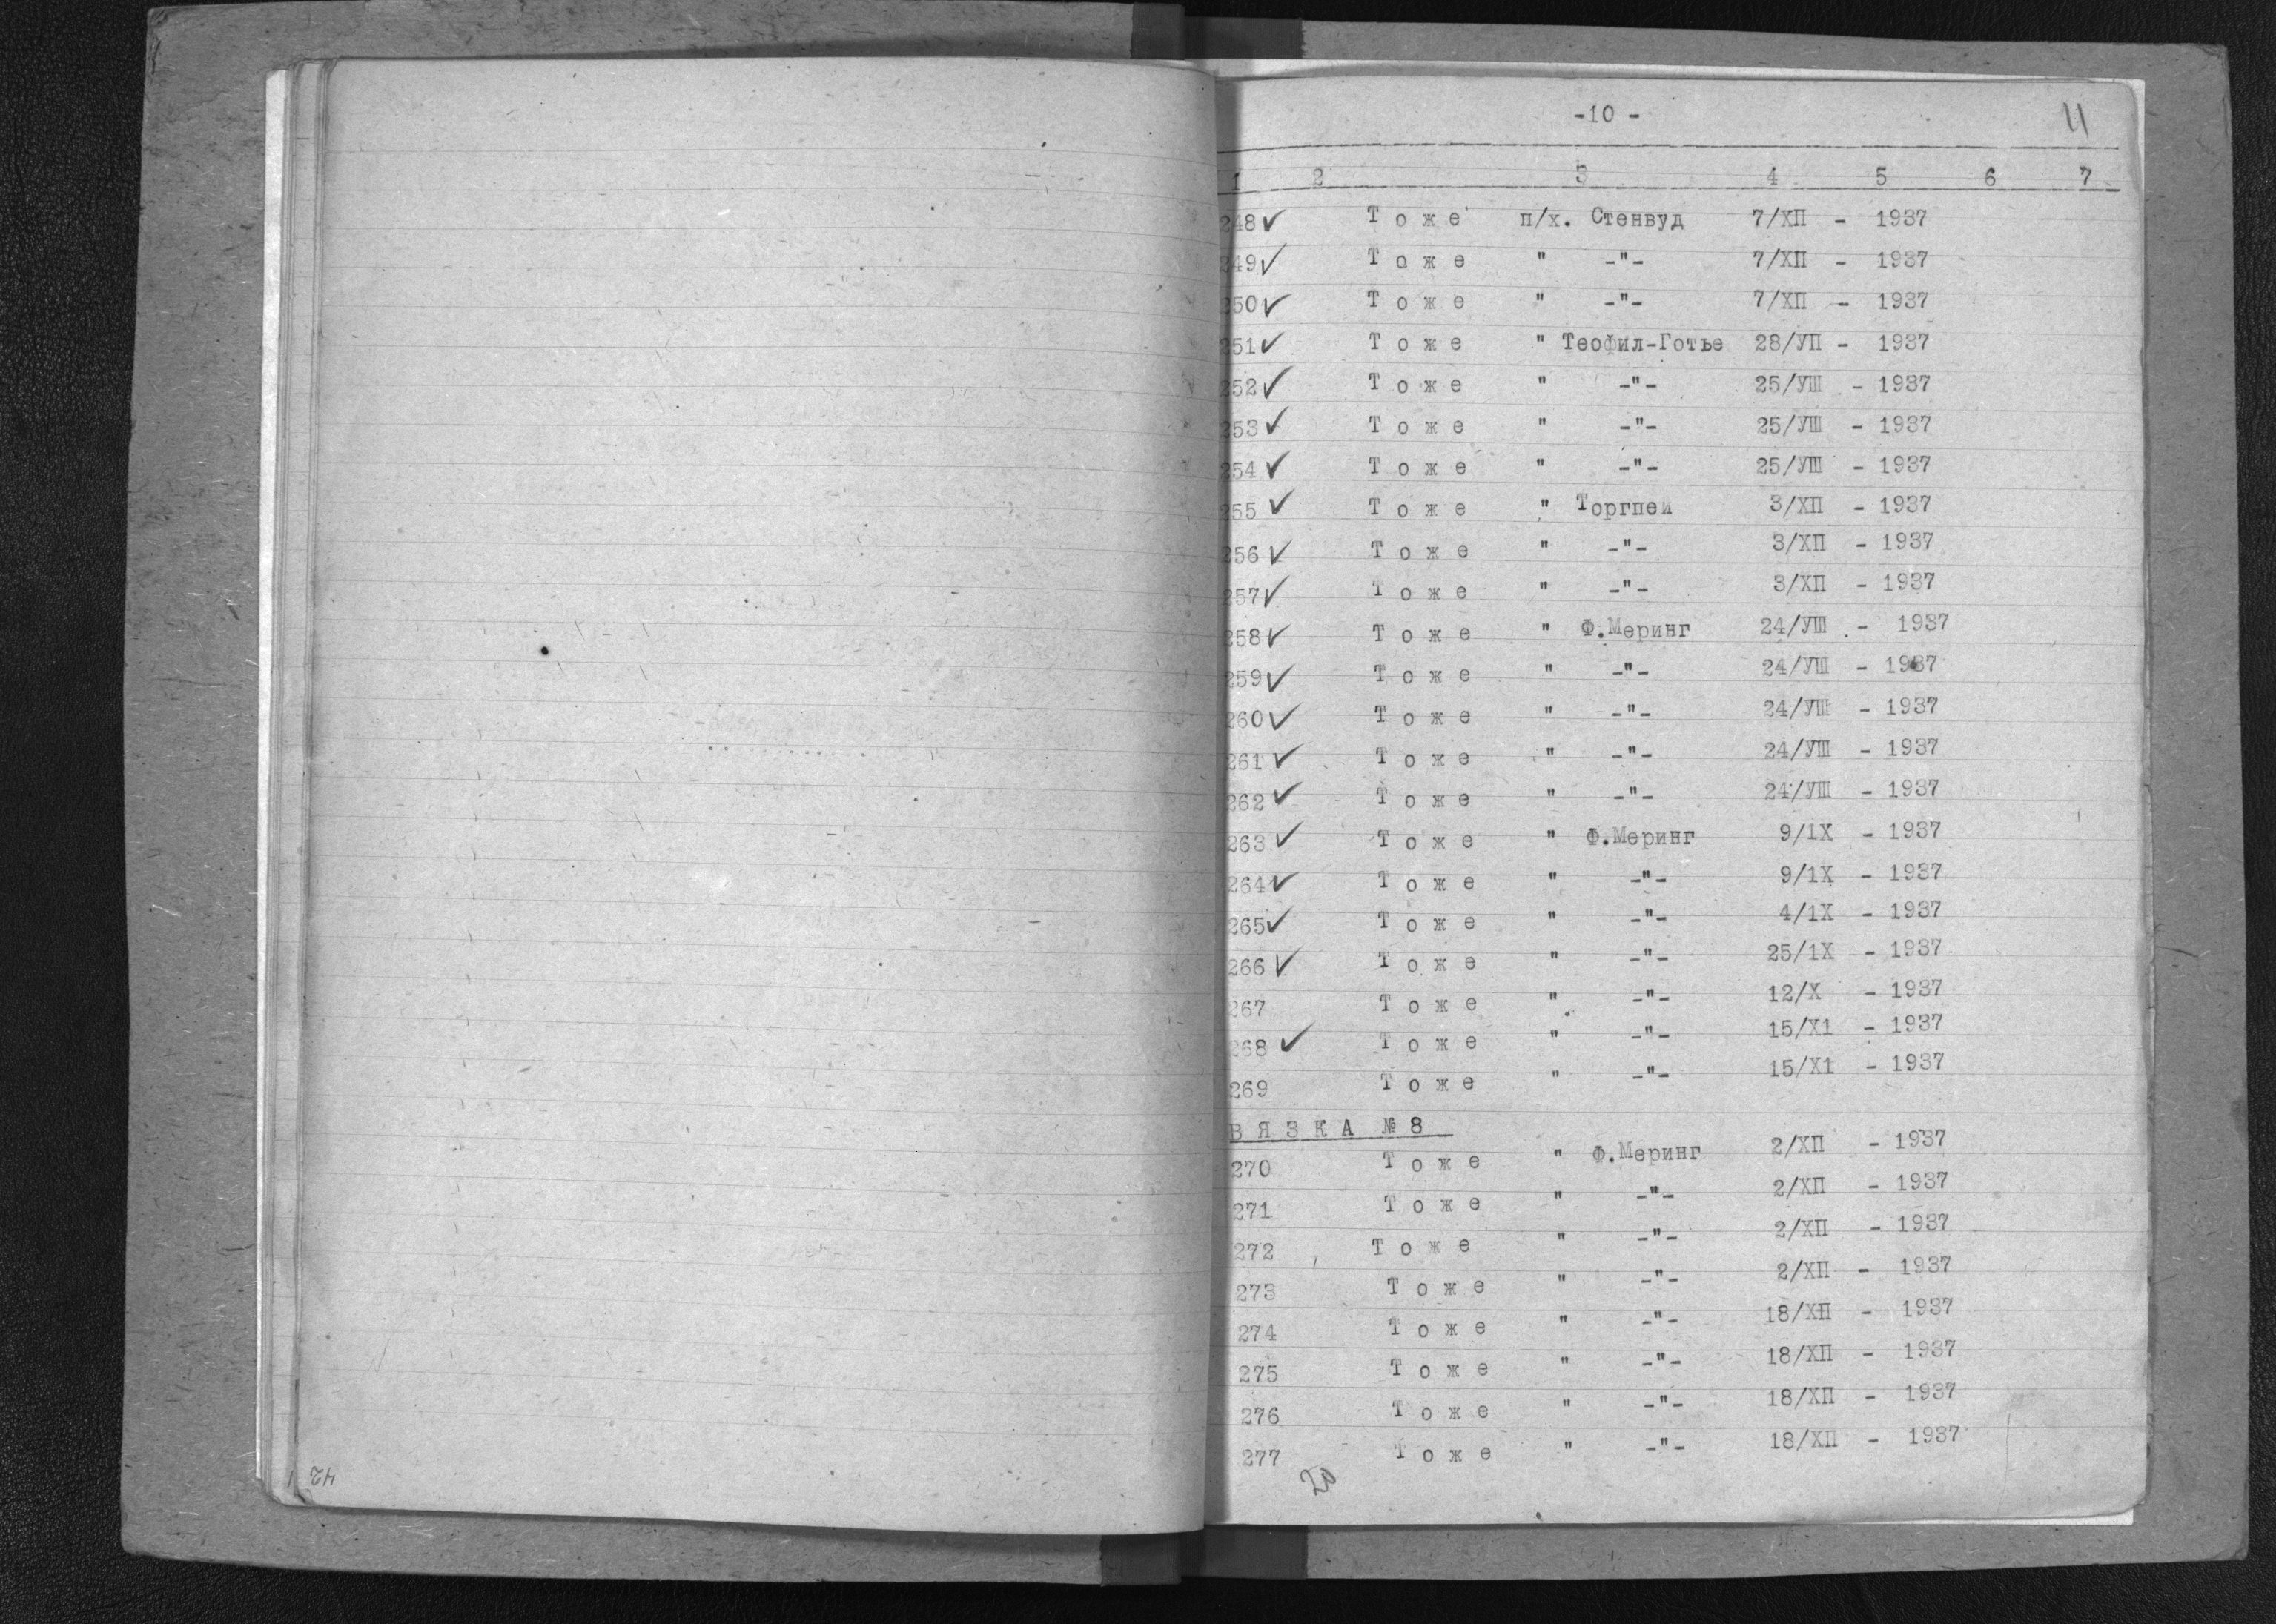 -10 -
11
1 2 3 4 5 6 7
248✓ Т о ж е п/х. Стенвуд 7/ХП - 1937
249✓ Т о ж е " -"- 7/ХП - 1937
250✓ Т о ж е " -"- 7/ХП - 1937
251✓ Т о ж е " Теофил-Готье 28/УП - 1937
252✓ Т о ж е " -"- 25/УШ - 1937
253✓ Т о ж е " -"- 25/УШ - 1937
254✓ Т о ж е " -"- 25/УШ - 1937
255✓ Т о ж е " Торгпей 3/ХП - 1937
256✓ Т о ж е " -"- 3/ХП - 1937
257✓ Т о ж е " -"- 3/ХП - 1937
258✓ Т о ж е " Ф.Меринг 24/УШ - 1937
259✓ Т о ж е " -"- 24/УШ - 1937
260✓ Т о ж е " -"- 24/УШ - 1937
261✓ Т о ж е " -"- 24/УШ - 1937
262✓ Т о ж е " -"- 24/УШ - 1937
263✓ Т о ж е " Ф.Меринг 9/1Х - 1937
264✓ Т о ж е " -"- 9/1Х - 1937
265✓ Т о ж е " -"- 4/1Х - 1937
266✓ Т о ж е " -"- 25/1Х - 1937
267 Т о ж е " -"- 12/Х - 1937
268 ✓ Т о ж е " -"- 15/Х1 - 1937
269 Т о ж е " -"- 15/Х1 - 1937
В Я З К А № 8
270 Т о ж е " Ф.Меринг 2/ХП - 1937
271 Т о ж е " -"- 2/ХП - 1937
272 Т о ж е " -"- 2/ХП - 1937
273 Т о ж е " -"- 2/ХП - 1937
274 Т о ж е " -"- 18/ХП - 1937
275 Т о ж е " -"- 18/ХП - 1937
276 Т о ж е " -"- 18/ХП - 1937
277 Т о ж е " -"- 18/ХП - 1937
20